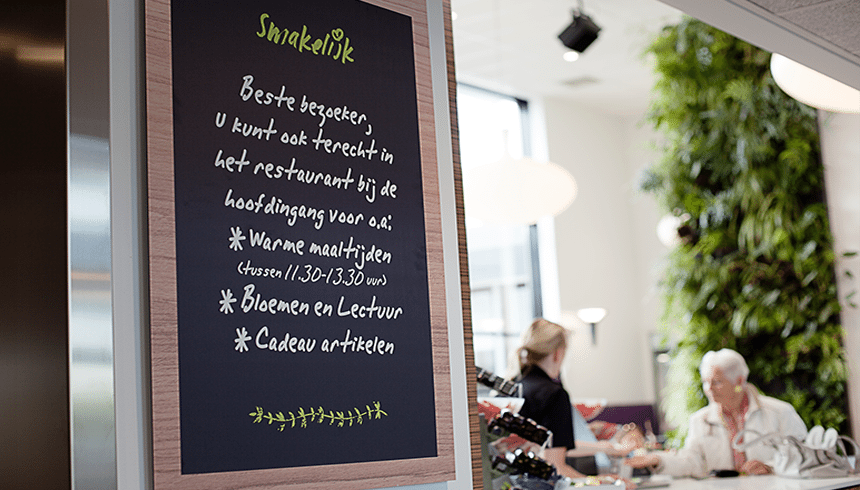 Smakelijk
Beste bezoeker,
u kunt ook terecht in
het restaurant bij de
hoofdingang voor o.a:
* Warme maaltijden
(tussen 11.30-13.30 uur)
* Bloemen en Lectuur
* Cadeau artikelen